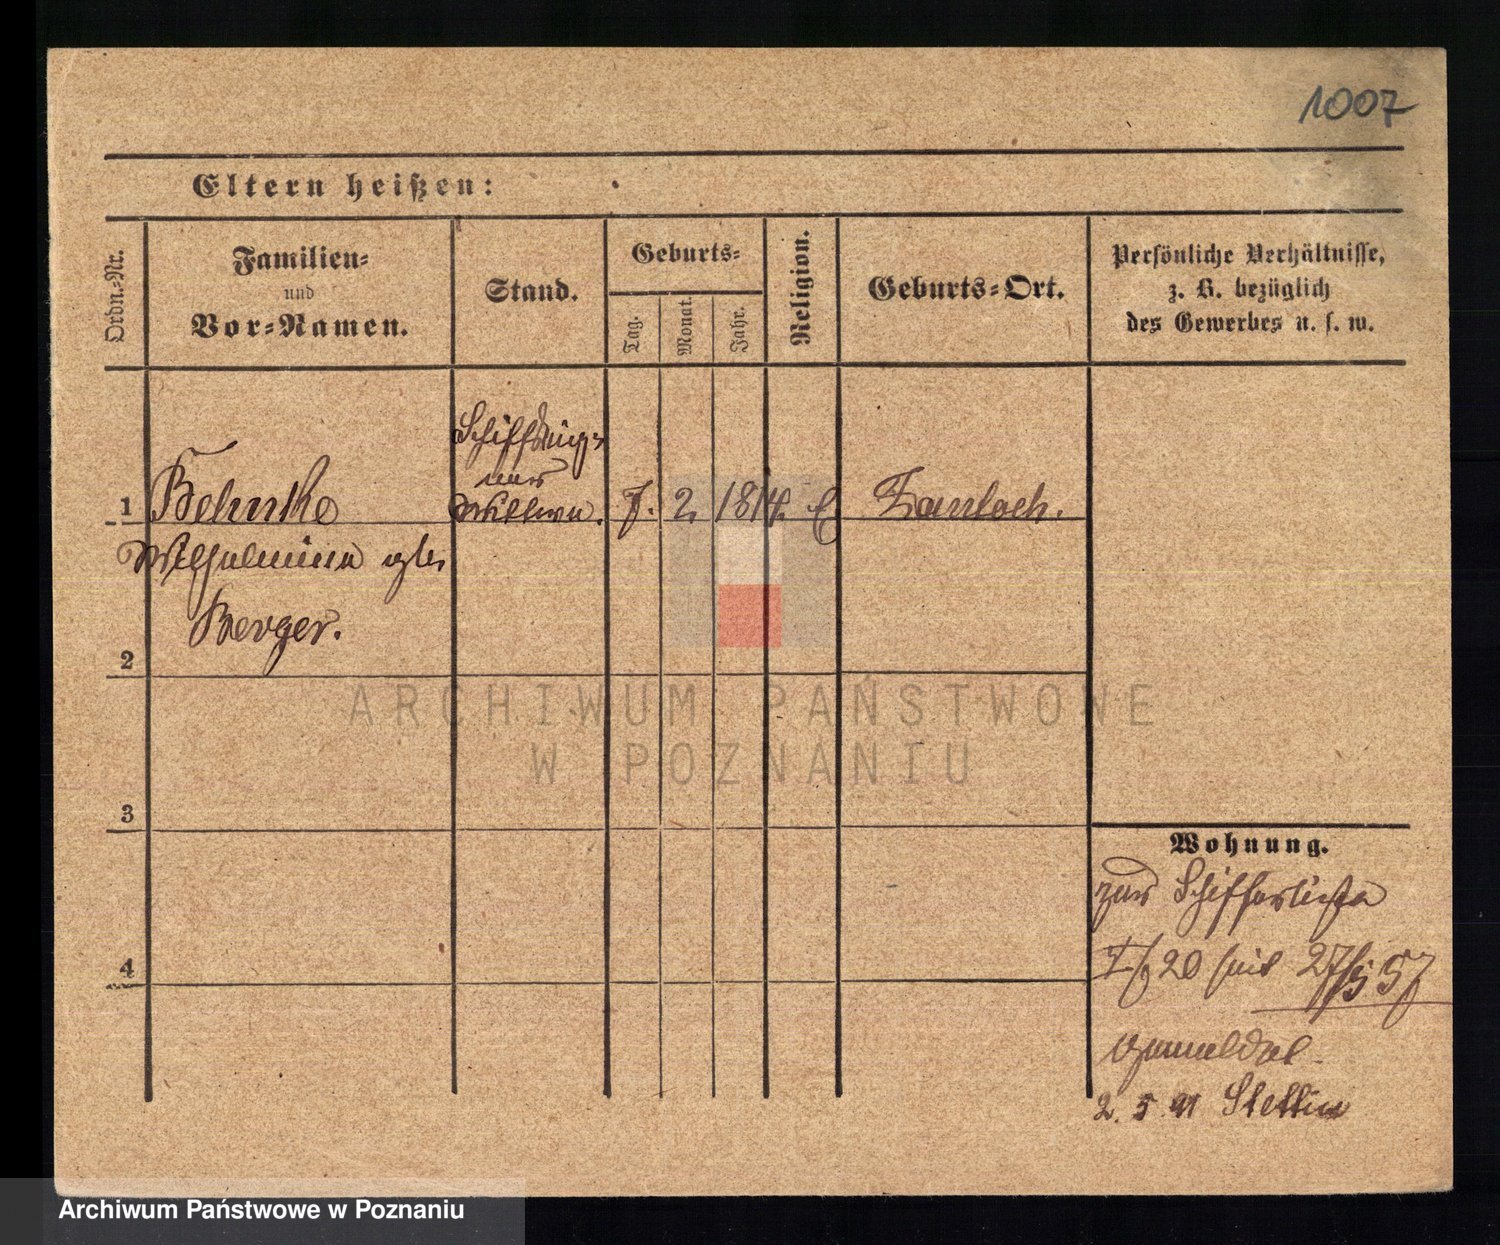 1007
Eltern heißen:
Ordn.-Nr.
Familien-
und
Vor-Namen.
Stand.
Geburts-
Tag.
Monat.
Jahr.
Religion.
Geburts-Ort.
Persönliche Verhältnisse,
z. B. bezüglich
des Gewerbes u. s. w.
1
Behnke
Wilhelmine
Berger.
Wittwe.
7. 2. 1814.
Zantoch.
2
3
4
Wohnung.
zur Schifferliste
20 seit 27/5 57
2. 5. 91 Stettin
ARCHIWUM PAŃSTWOWE
W POZNANIU
Archiwum Państwowe w Poznaniu